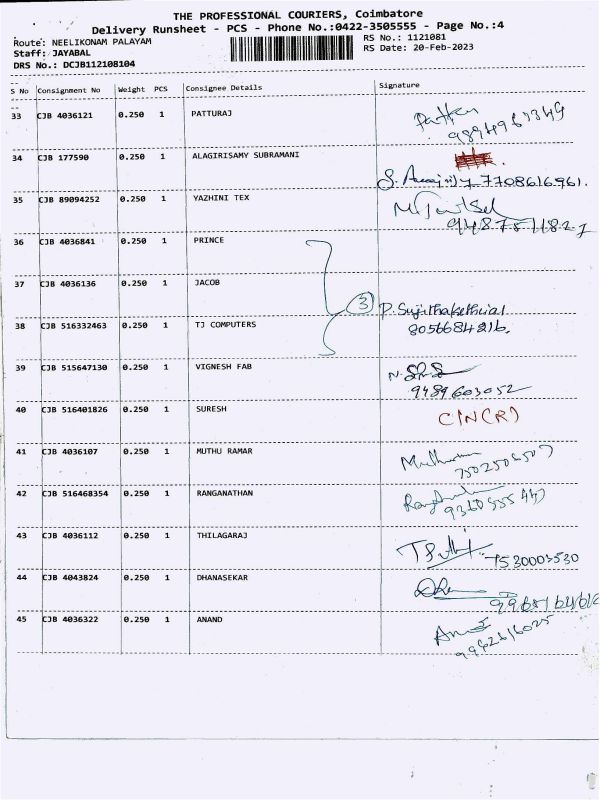 THE PROFESSIONAL COURIERS, Coimbatore
Delivery Runsheet - PCS - Phone No.:0422-3505555 - Page No.:4
Route: NEELIKONAM PALAYAM RS No.: 1121081
Staff: JAYABAL RS Date: 20-Feb-2023
DRS No.: DCJB112108104
S No Consignment No Weight PCS Consignee Details Signature
33 CJB 4036121 0.250 1 PATTURAJ
34 CJB 177590 0.250 1 ALAGIRISAMY SUBRAMANI
7708616961.
35 CJB 89094252 0.250 1 YAZHINI TEX
36 CJB 4036841 0.250 1 PRINCE
37 CJB 4036136 0.250 1 JACOB
3
38 CJB 516332463 0.250 1 TJ COMPUTERS
8056684216.
39 CJB 515647130 0.250 1 VIGNESH FAB
9489603052
40 CJB 516401826 0.250 1 SURESH
C/N(R)
41 CJB 4036107 0.250 1 MUTHU RAMAR
42 CJB 516468354 0.250 1 RANGANATHAN
43 CJB 4036112 0.250 1 THILAGARAJ
7530003530
44 CJB 4043824 0.250 1 DHANASEKAR
45 CJB 4036322 0.250 1 ANAND
9942616025